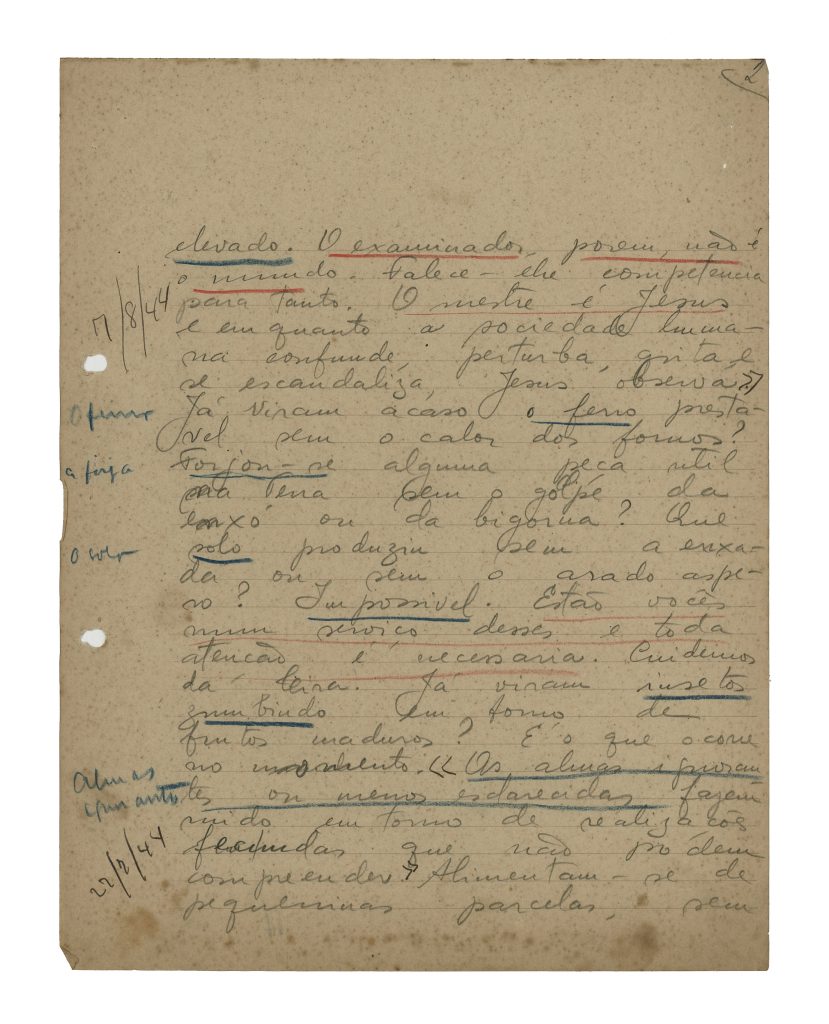 2
elevado. O examinador, porem, não é
o mundo. Falece-lhe competencia
para tanto. O mestre é Jesus
e em quanto a sociedade huma-
na confunde, perturba, grita e
se escandaliza, Jesus observa.»
Já viram acaso o ferro presta-
vel sem o calor dos fornos?
Forjou-se alguma peça util
na Terra sem o golpe da
enxó ou da bigorna? Que
solo produziu sem a enxa-
da ou sem o arado aspe-
ro? Impossivel. Estão vocês
num serviço desses e toda
atencão é necessaria. Cuidemos
da leira. Já viram insetos
zumbindo em torno de
frutos maduros? É o que ocorre
no momento. «As almas ignoran
tes ou menos esclarecidas fazem
ruido em torno de realizações
fecundas que não pódem
compreender.» Alimentam-se de
pequeninas parcelas, sem
17/8/44
O ferro
a forja
o solo
Almas
ignorantes
22/2/44